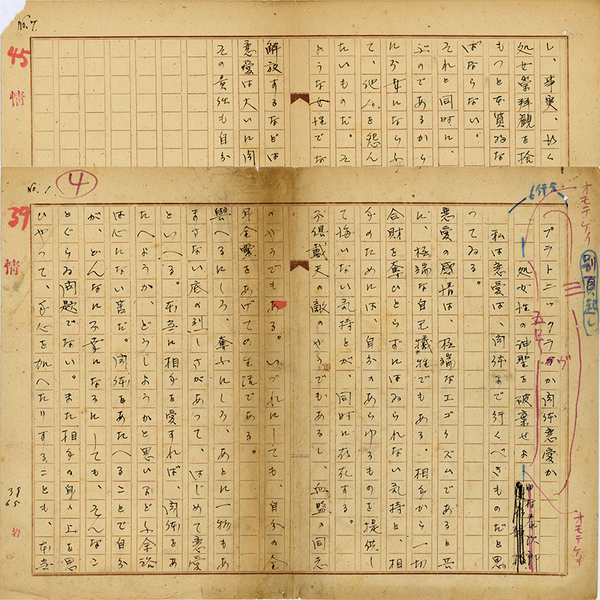 No.7
し、事実、
処女崇拝観を捨
もつと本質的な
ばならない。
それと同時に、
ぶのであるから
て、他人を怨ん
たいものだ。そ
ような女性でな
解放するなどは
恋愛は大いに肉
その責任も自分
45
情
No.1
4
オモテケイ
6行分
別頁起し
プラトニックラヴか肉体恋愛か
ヴ
五号
――処女性の神聖を破棄せよ
田村泰次郎
オモテケイ
私は恋愛は、肉体まで行くべきものだと思
つてゐる。
恋愛の感情は、極端なエゴイズムであると共
に、極端な自己犠牲でもある。相手から一切
合財を奪ひとらずにはゐられない気持と、相
手のためには、自分のあらゆるものを提供し
て悔いない気持とが、同時に存在する。
不倶戴天の敵のやうでもあるし、血盟の同志
のやうでもある。いづれにしても、自分の全
身全霊をあげての生活である。
與へるにしろ、奪ふにしろ、あとに一物もあ
まさない底の烈しさがあつて、はじめて恋愛
といへる。本当に相手を愛すれば、肉体をあ
たへようか、どうしようかと思いまどふ余裕
は心にない筈だ。肉体をあたへることで自分
が、どんなに不幸になるにしても、そんなこ
とぐらゐ問題でない。また相手の身の上を思
ひやつて、手心を加へたりすることも、本当
39
情
39
65